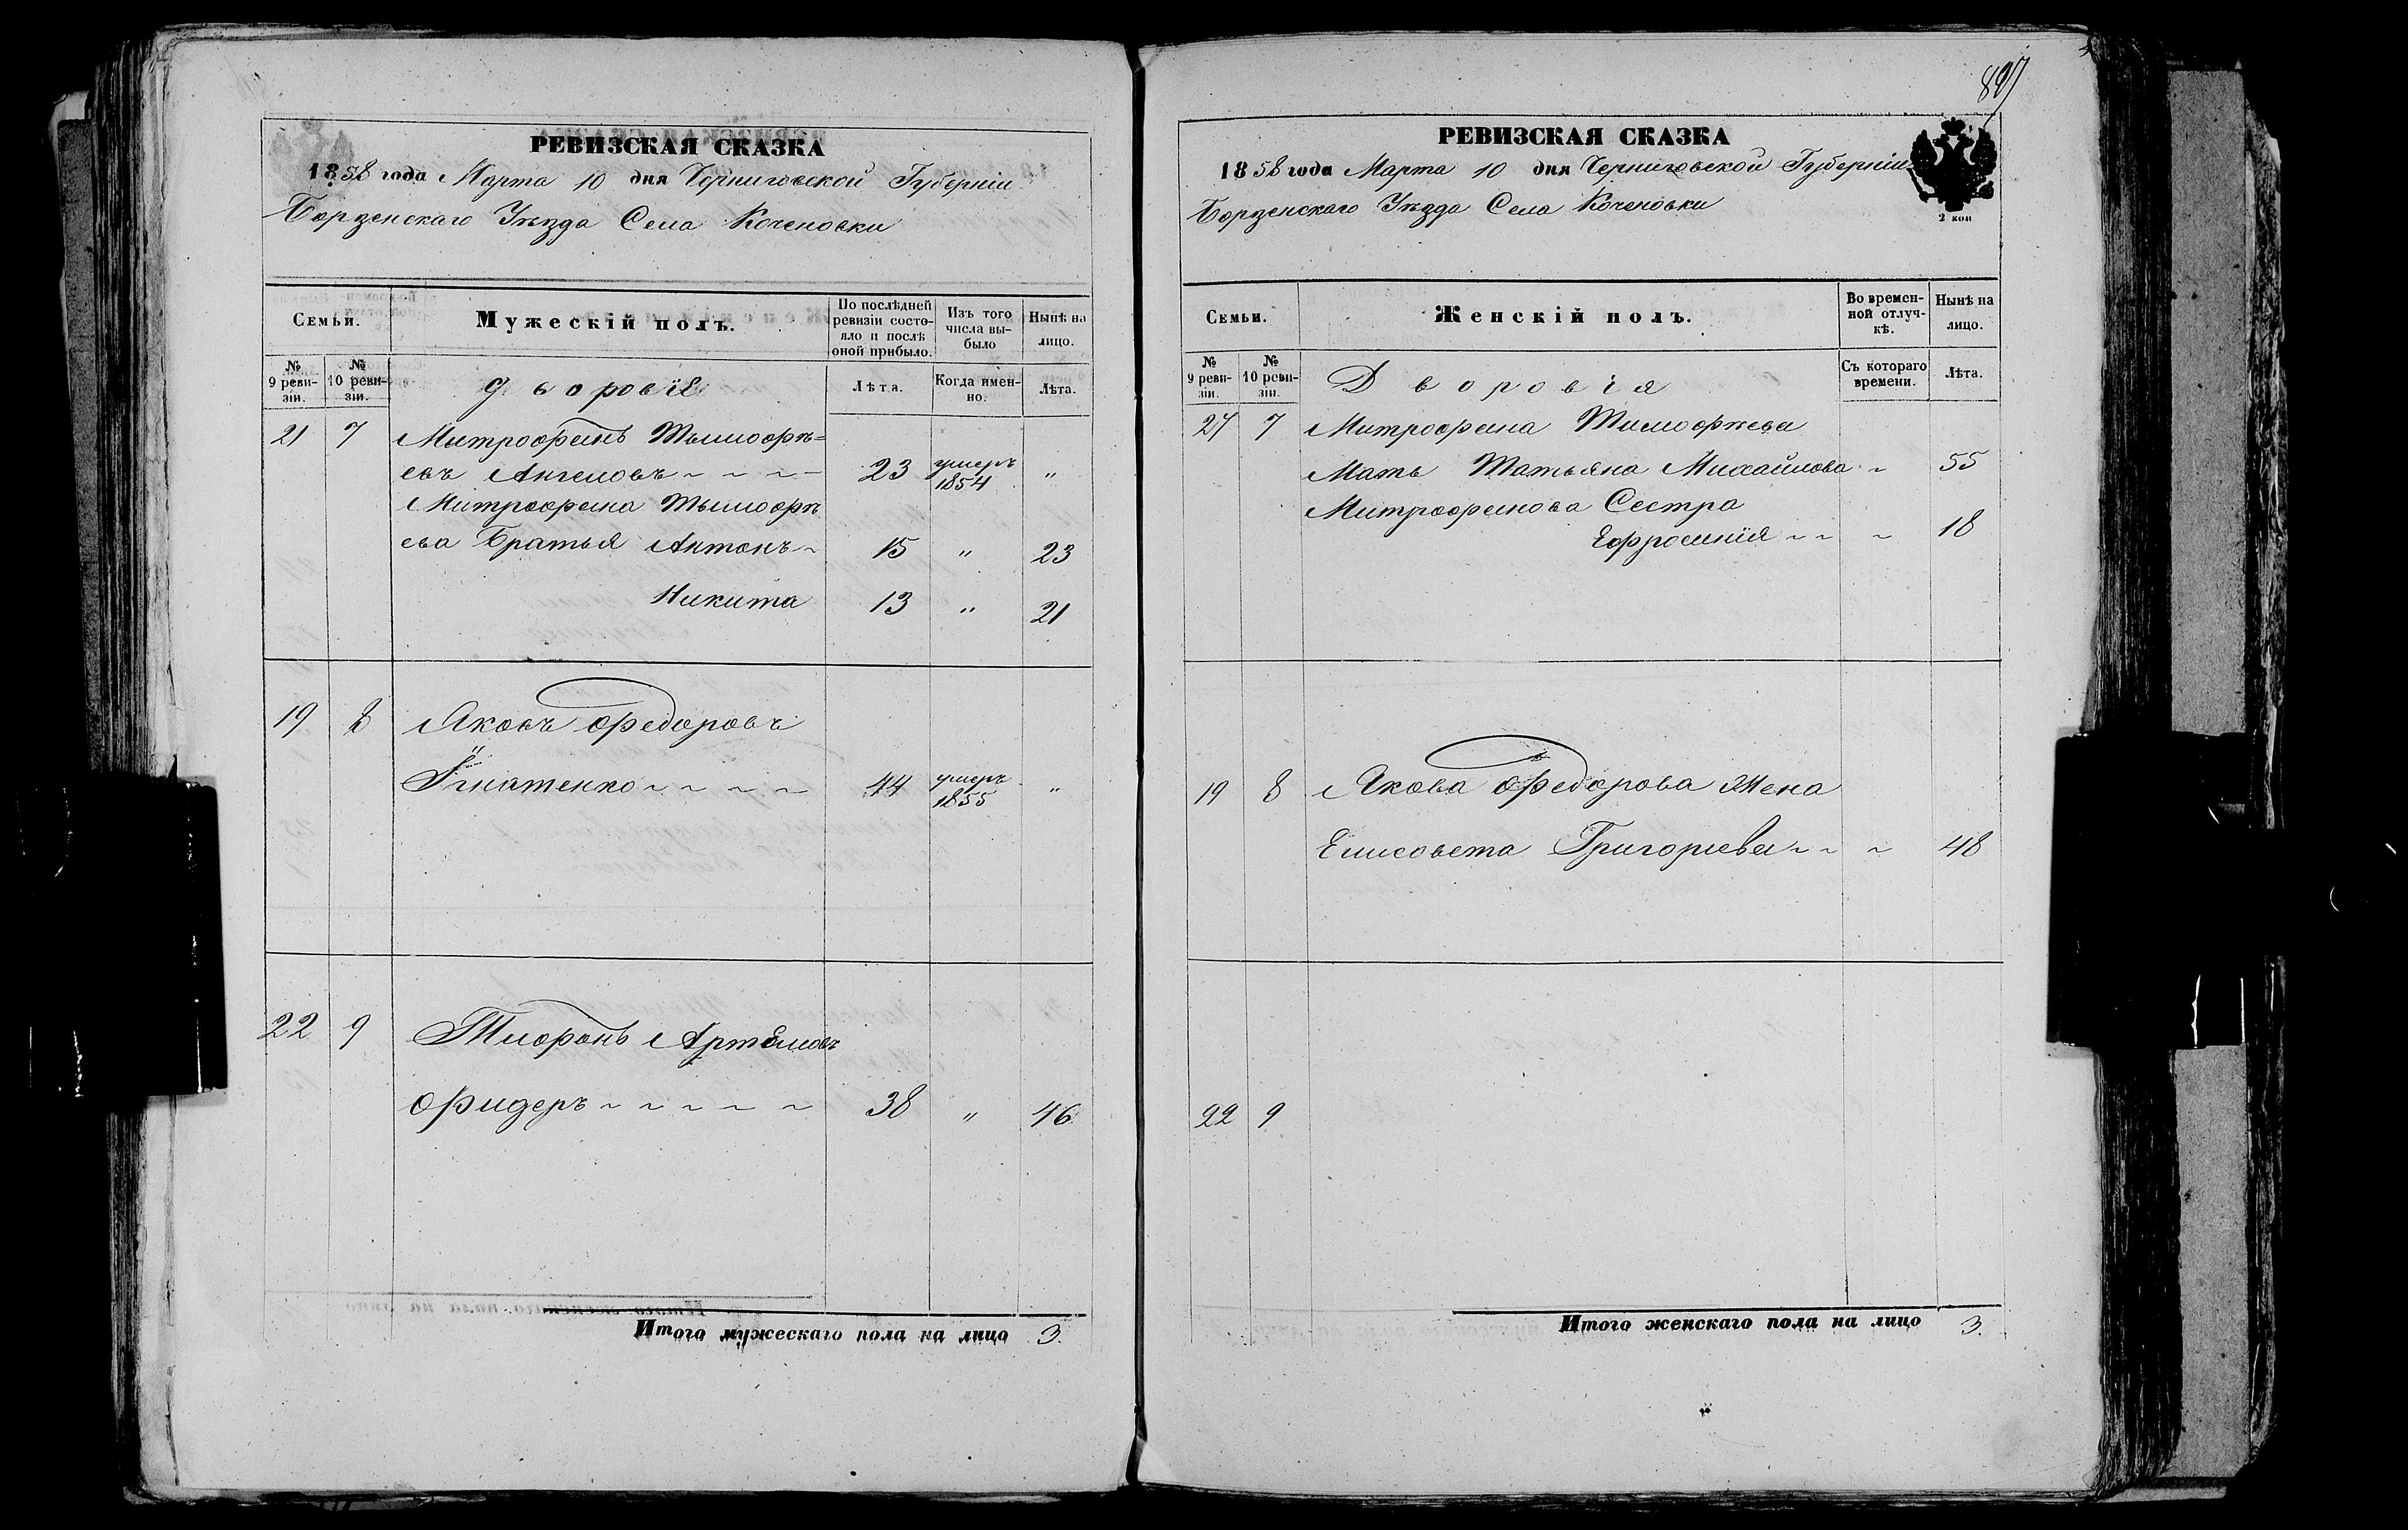 РЕВИЗСКАЯ СКАЗКА
1858 года Марта 10 дня Черниговской Губерніи
Борзенскаго Уѣзда Села Коченовки
Семьи.
Мужескій полъ.
По послѣдней ревизіи состояло и послѣ оной прибыло.
Изъ того числа выбыло
Нынѣ на лицо.
№ 9 ревизіи.
№ 10 ревизіи.
Дворовія
Лѣта.
Когда именно.
Лѣта.
21 7 Митрофанъ Тымофѣ=
евъ Ангеловъ 23 умеръ 1854 "
Митрофана Тымофѣ
ева Братья Антонъ 15 " 23
Никита 13 " 21
19 8 Яковъ Федоровъ
Игнатенко 44 умеръ 1855 "
22 9 Тифонъ Артемовъ
Фидеръ 38 " 46
Итого мужескаго пола на лицо 3.
807
РЕВИЗСКАЯ СКАЗКА
1858 года Марта 10 дня Черниговской Губерніи
Борзенскаго Уѣзда Села Коченовки
2 коп
Семьи.
Женскій полъ.
Во временной отлучкѣ.
Нынѣ на лицо.
№ 9 ревизіи.
№ 10 ревизіи.
Дворовія
Съ котораго времени.
Лѣта.
27 7 Митрофана Тимофѣева
Мать Татьяна Михайлова 55
Митрофанова Сестра
Ефросинія 18
19 8 Якова Федорова Жена
Елисовета Григориева 48
22 9
Итого женскаго пола на лицо 3.